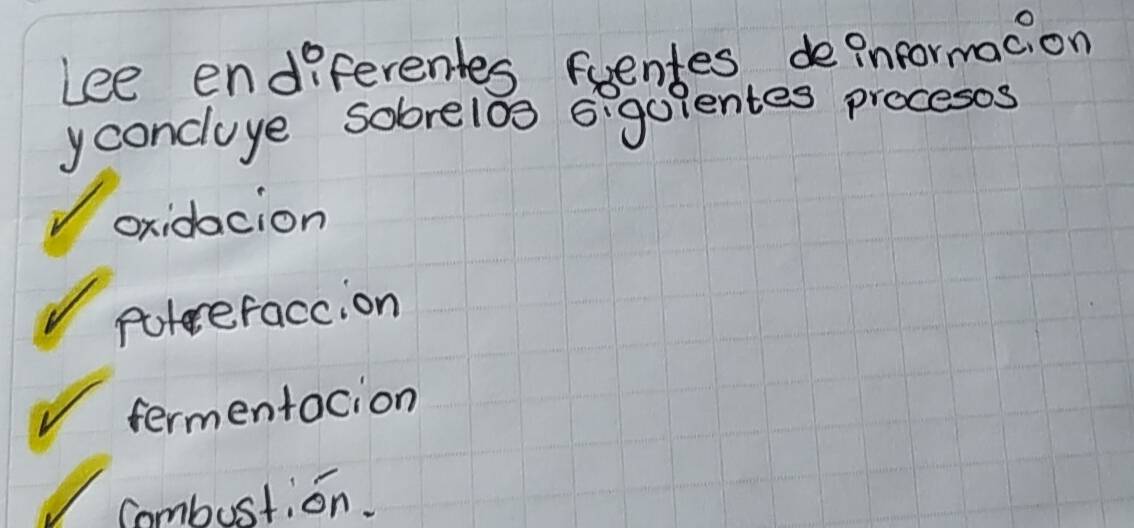 Lee en diferentes fuentes de informacion
y concluye sobre los siguientes procesos
✓ oxidacion
✓ putrefaccion
✓ fermentacion
✓ combustión.